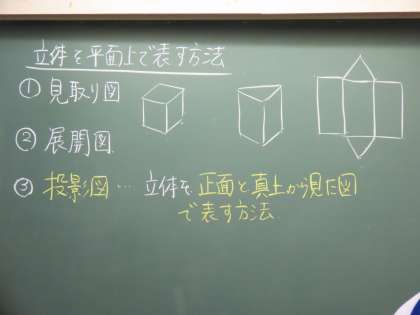 立体を平面上で表す方法
① 見取り図
② 展開図
③ 投影図… 立体を、正面と真上から見た図
で表す方法